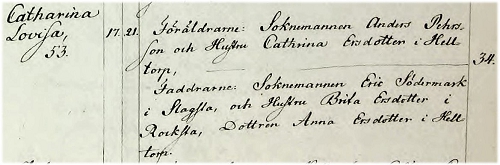 Catharina
Lovisa,
53.
17. 21. Föräldrarne: Soknemannen Anders Pehrs-
son och Hustru Cathrina Ersdotter i Hell
torp,
34.
Faddrarne: Soknemannen Eric Södermark
i Slagsta, och Hustru Brita Ersdotter i
Rocksta, Dottren Anna Ersdotter i Hell
torp.